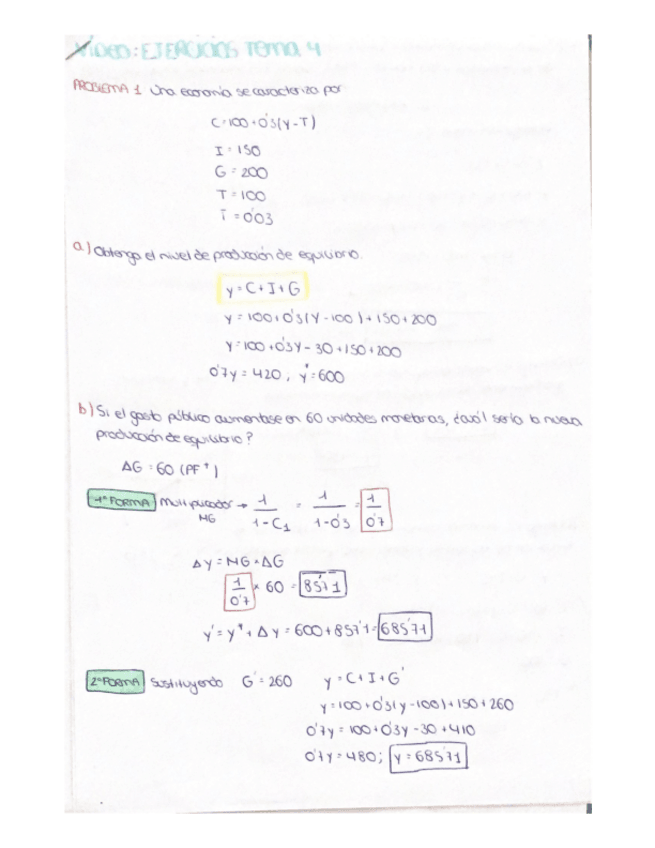 VIDEO: EJERCICIOS TEMA 4
PROBLEMA 1 Una economía se caracteriza por
C=100+0'3(Y-T)
I = 150
G = 200
T = 100
i = 0'03
a) Obtenga el nivel de producción de equilibrio.
y = C + I + G
y = 100+0'3(Y-100)+150+200
y = 100+0'3y-30+150+200
0'7y = 420; y* = 600
b) Si el gasto público aumentase en 60 unidades monetarias, ¿cuál sería la nueva
producción de equilibrio?
ΔG = 60 (PF↑)
1ª FORMA Multiplicador → 1/1-C1 = 1/1-0'3 = 1/0'7
MG
Δy = MG × ΔG
1/0'7 × 60 = 85'71
y' = y* + Δy = 600+85'71 = 685'71
2ª FORMA Sustituyendo G' = 260 y = C + I + G'
y = 100+0'3(y-100)+150+260
0'7y = 100+0'3y-30+410
0'7y = 480; y = 685'71